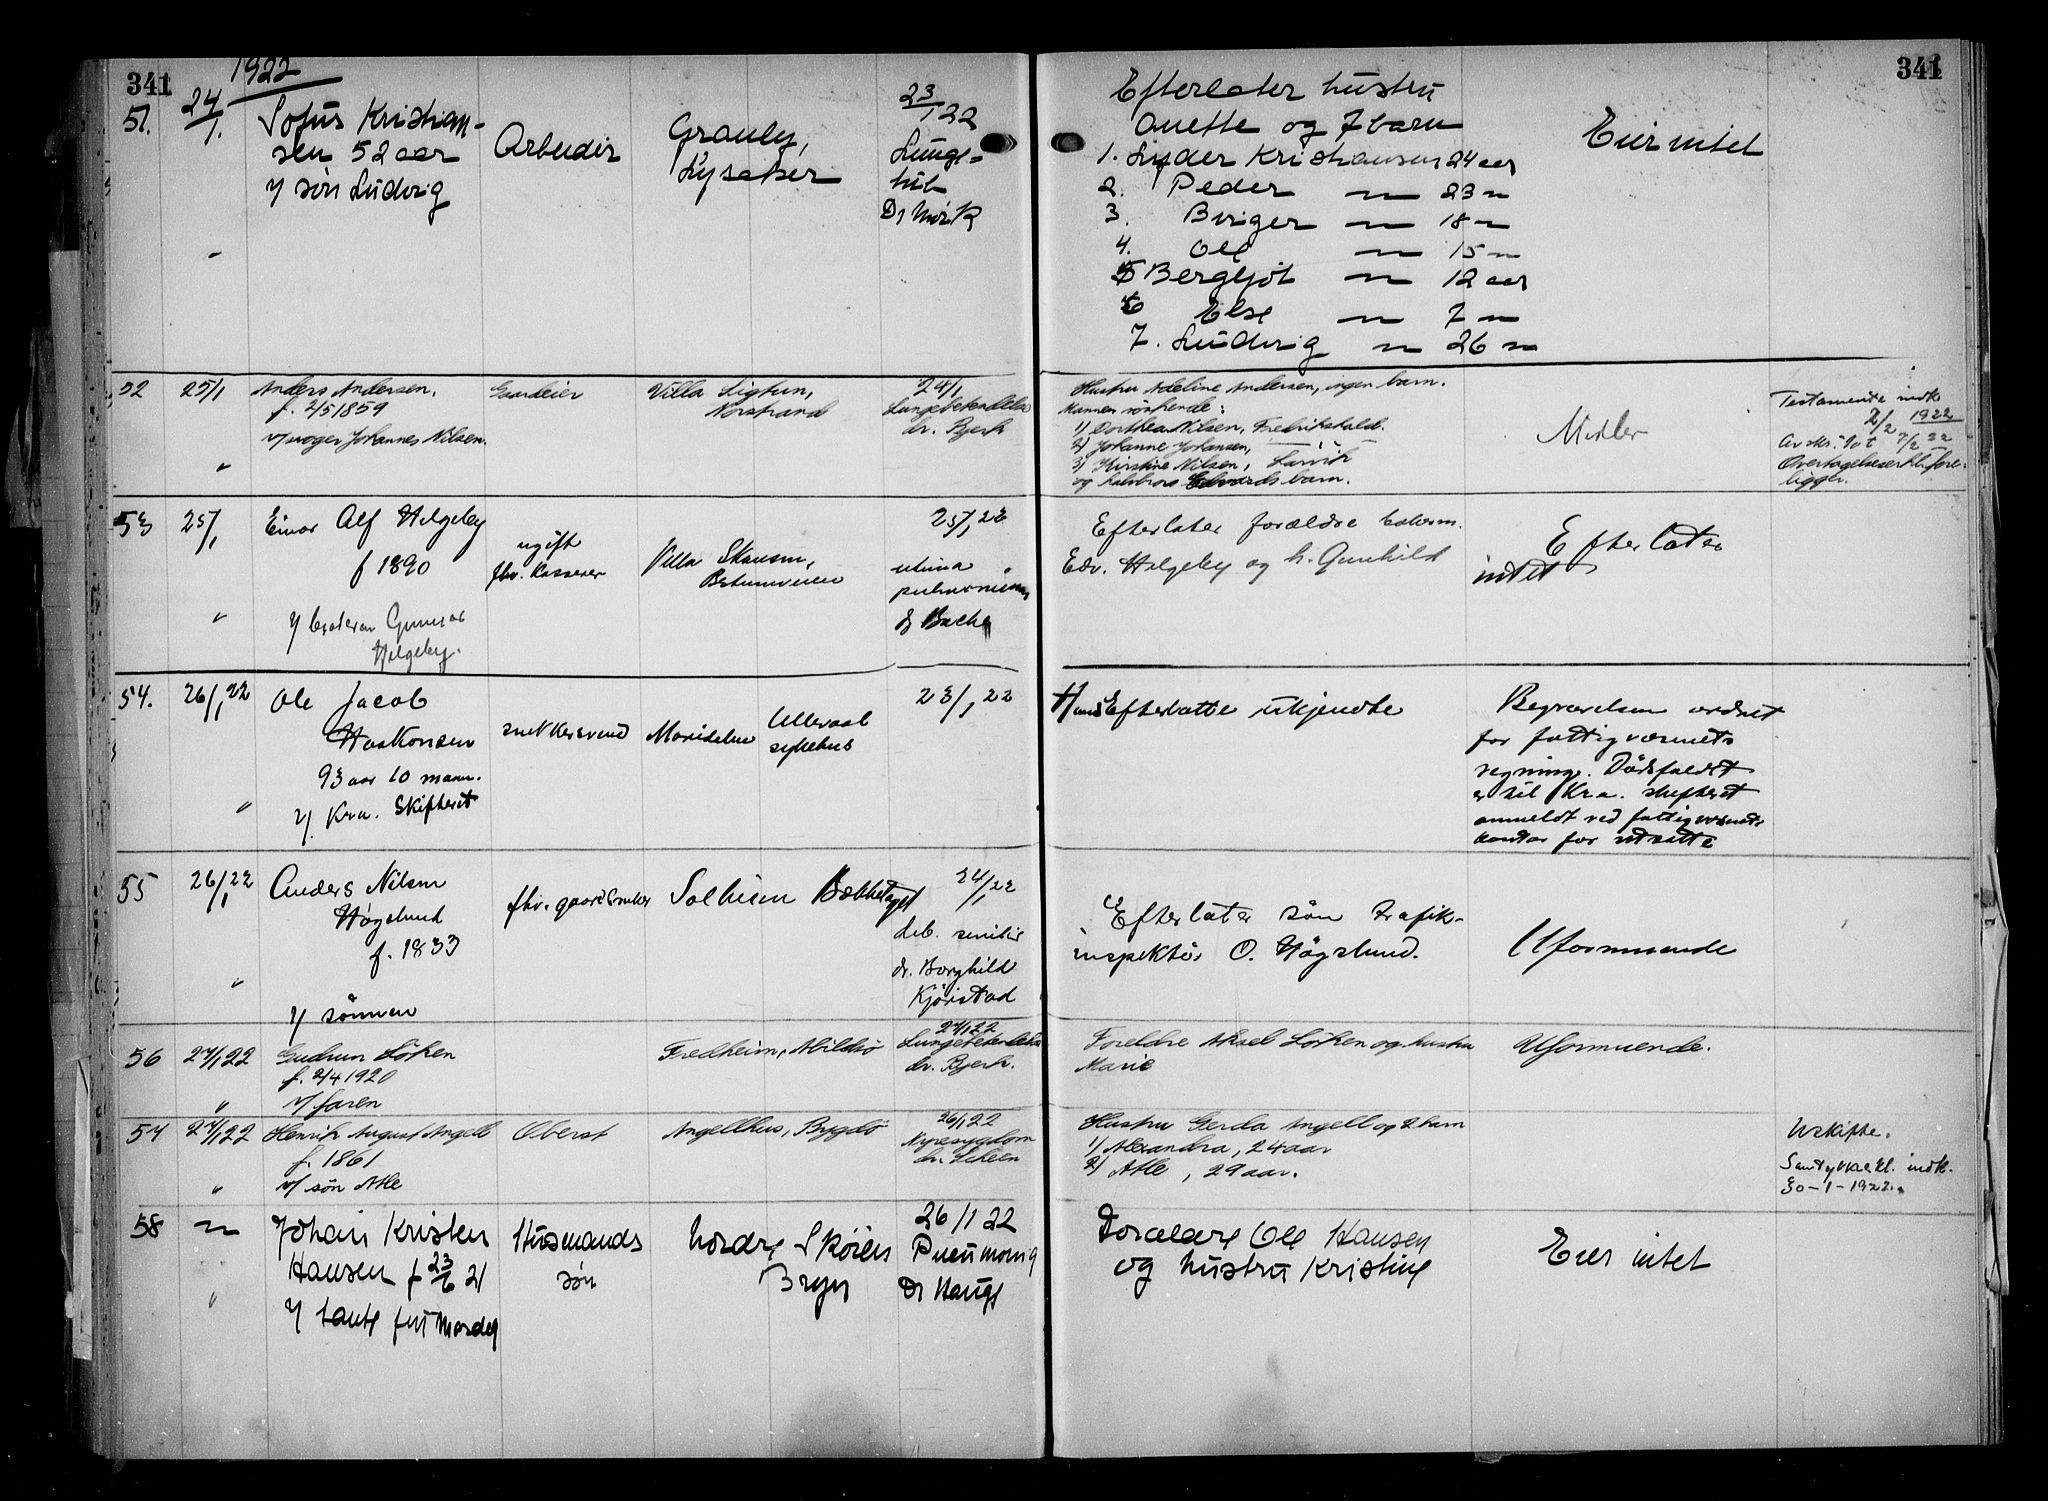 341
1922
51.
24/1.
Sofus Kristian-
sen 52 aar
v/ søn Ludvig
"
Arbeider
Granly,
Lysaker
23/1 22
Lunge-
Dr Mørk
Efterlater hustru
Anette og 7 barn
1. Lyder Kristiansen 24 aar
2. Peder — " — 23 "
3. Birger — " — 18 "
4. Ole — " — 15 "
5 Bergljot — " — 12 aar
6 Else — " — 7 "
7. Ludvig — " — 26 "
Eier intet
341
52
25/1
Anders Andersen,
f. 2/5 1859
v/ svoger Johannes Nilsen.
"
Gaardeier
Villa Sigtun,
Norstrand
24/1
Lungebetendelse
dr. Bjerk
Hustru Adeline Andersen, ingen barn.
Mannens søskende:
1) Dorthea Nilsen, Fredrikshald.
2) Johanne Johansen, — " —
3) Kirstine Nilsen, Larvik
og halvbror Edvards barn.
Midler
Testamente indk
2/2 1922
7/2 22
Overtagelseserkl. fore-
ligger.
53
25/1
Einar Alf Helgeby
f 1890
v/ broderen Gunnar
Helgeby.
"
ugift
fhv. kasserer
Villa Skansen,
Bestumveien
25/1 22
pulmonum
dr Bache
Efterlater forældre
Edv. Helgeby og h. Gunhild
Efterlater
intet
54.
26/1 22
Ole Jacob
Haakonsen
93 aar 10 maan.
v/. Kra. Skifteret
"
snekkersvend
Maridalen
Ullevaal
sykehus
23/1 22
Hans Efterlatte ukjendte
Begravelsen ordnet
for fattigvæsenets
regning. Dødsfaldet
er til Kra. skifteret
anmeldt ved fattigvæsenets
kontor for utsatte
55
26/1 22
Anders Nilsen
Høgslund
f. 1833
"
v/ sønnen
fhv. gaardbruker
Solheim Bækkelaget
24/1 22
deb. senilis
dr. Borghild
Kjørstad
Efterlater søn trafik-
inspektør O. Høgslund.
Uformuende
56
27/1 22
Gudrun Løken
f. 2/4 1920
" v/ faren
Fredheim, Alildsø
27/1 22
Lungebetendelse
dr. Bjerk.
Foreldre Aksel Løken og hustru
Marie
Uformuende.
57
27/1 22
Henrik August Angell
f. 1861
" v/ søn Atle
Oberst
Angellhus, Bygdø
26/1 22
Nyresygdom
dr. Scheen
Hustru Gerda Angell og 2 barn
1) Alexandra, 24 aar
2) Atle, 29 aar.
Uskifte.
Samtykkeerkl. indk.
30-1-1922.
58
— " —
Johan Kristen
Hansen f 23/6 21
" v/ tante fru
Husmands
søn
Nordre Skøien
Bryn
26/1 22
Pneumoni
Dr Hauge
Forældre Ole Hansen
og hustru Kristine
Eier intet